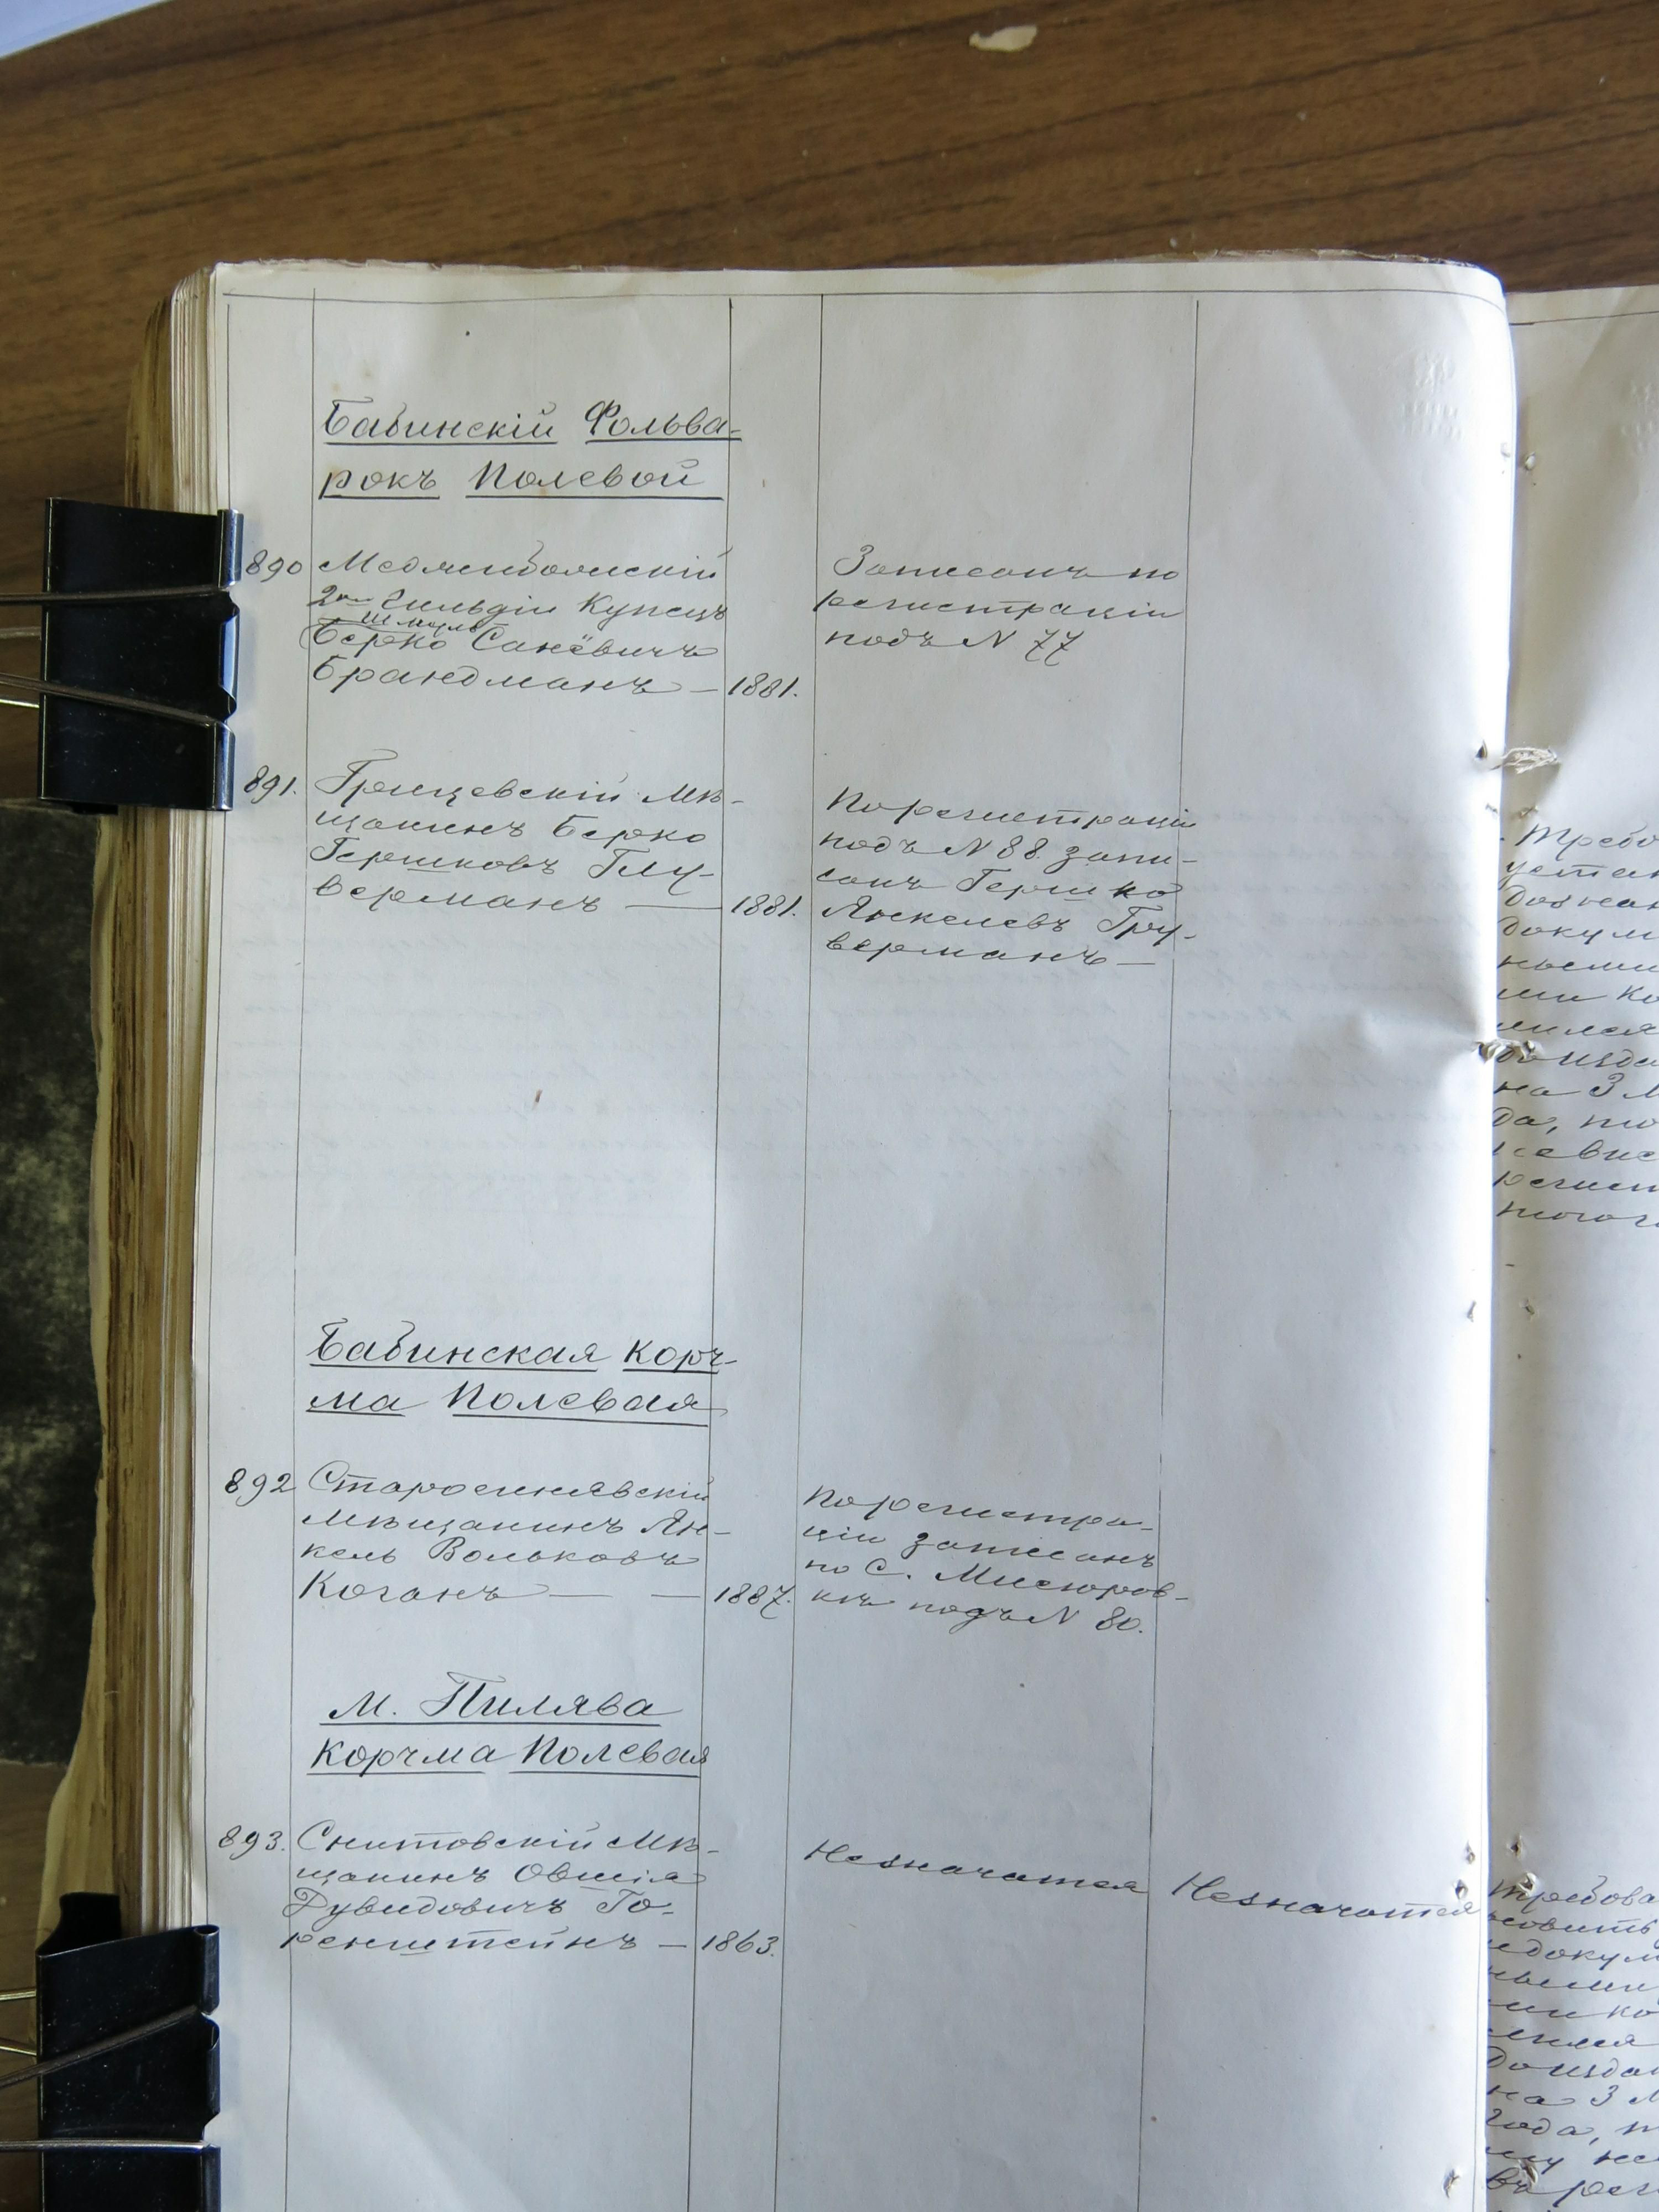 Бабинскій Фольва-
рокъ Полевой
890 Меджибожскій
2ой Гильдіи Купецъ
Шмуль
Берко Санёвичъ
Брандманъ — 1881.
Записанъ по
регистраціи
подъ N 77
891. Грицевскій Мѣ-
щанинъ Берко
Гершковъ Глу-
верманъ — 1881.
По регистраціи
подъ N 88. запи-
санъ Гершко
Янкелевъ Гру-
верманъ —
Бабинская Корч-
ма Полевая
892 Старосинявскій
Мѣщанинъ Ян-
кель Вольковъ
Коганъ — — 1887.
По регистра-
ціи записанъ
по С. Мисюров-
кѣ подъ N 80.
м. Пилява
Корчма Полевая
893. Снитовскій Мѣ-
щанинъ Овшія
Дувидовичъ Го-
ренштейнъ — 1863.
Незначится
Незначится
Требо
устан
докум
ными
ми ко
на 3 м
да, по
Требова
новить
докум
ными
ми ко
на 3 м
года, п
му не
въ рег